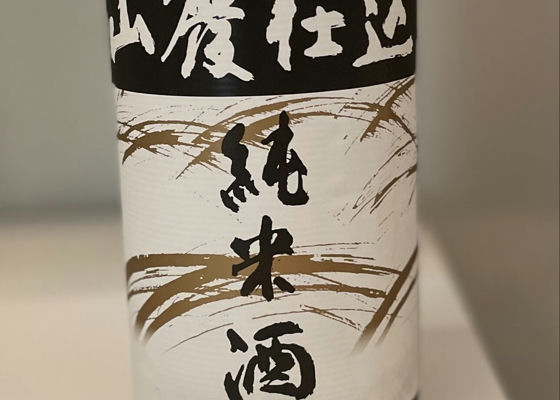 山廃仕込
純米酒